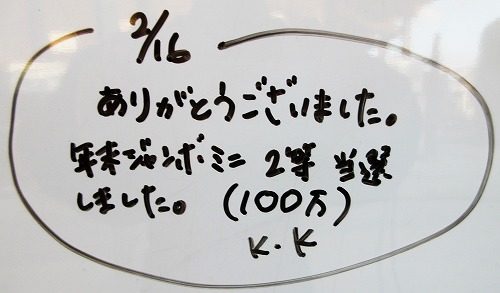 2/16
ありがとうございました。
年末ジャンボ・ミニ 2等 当選
しました。(100万)
K.K